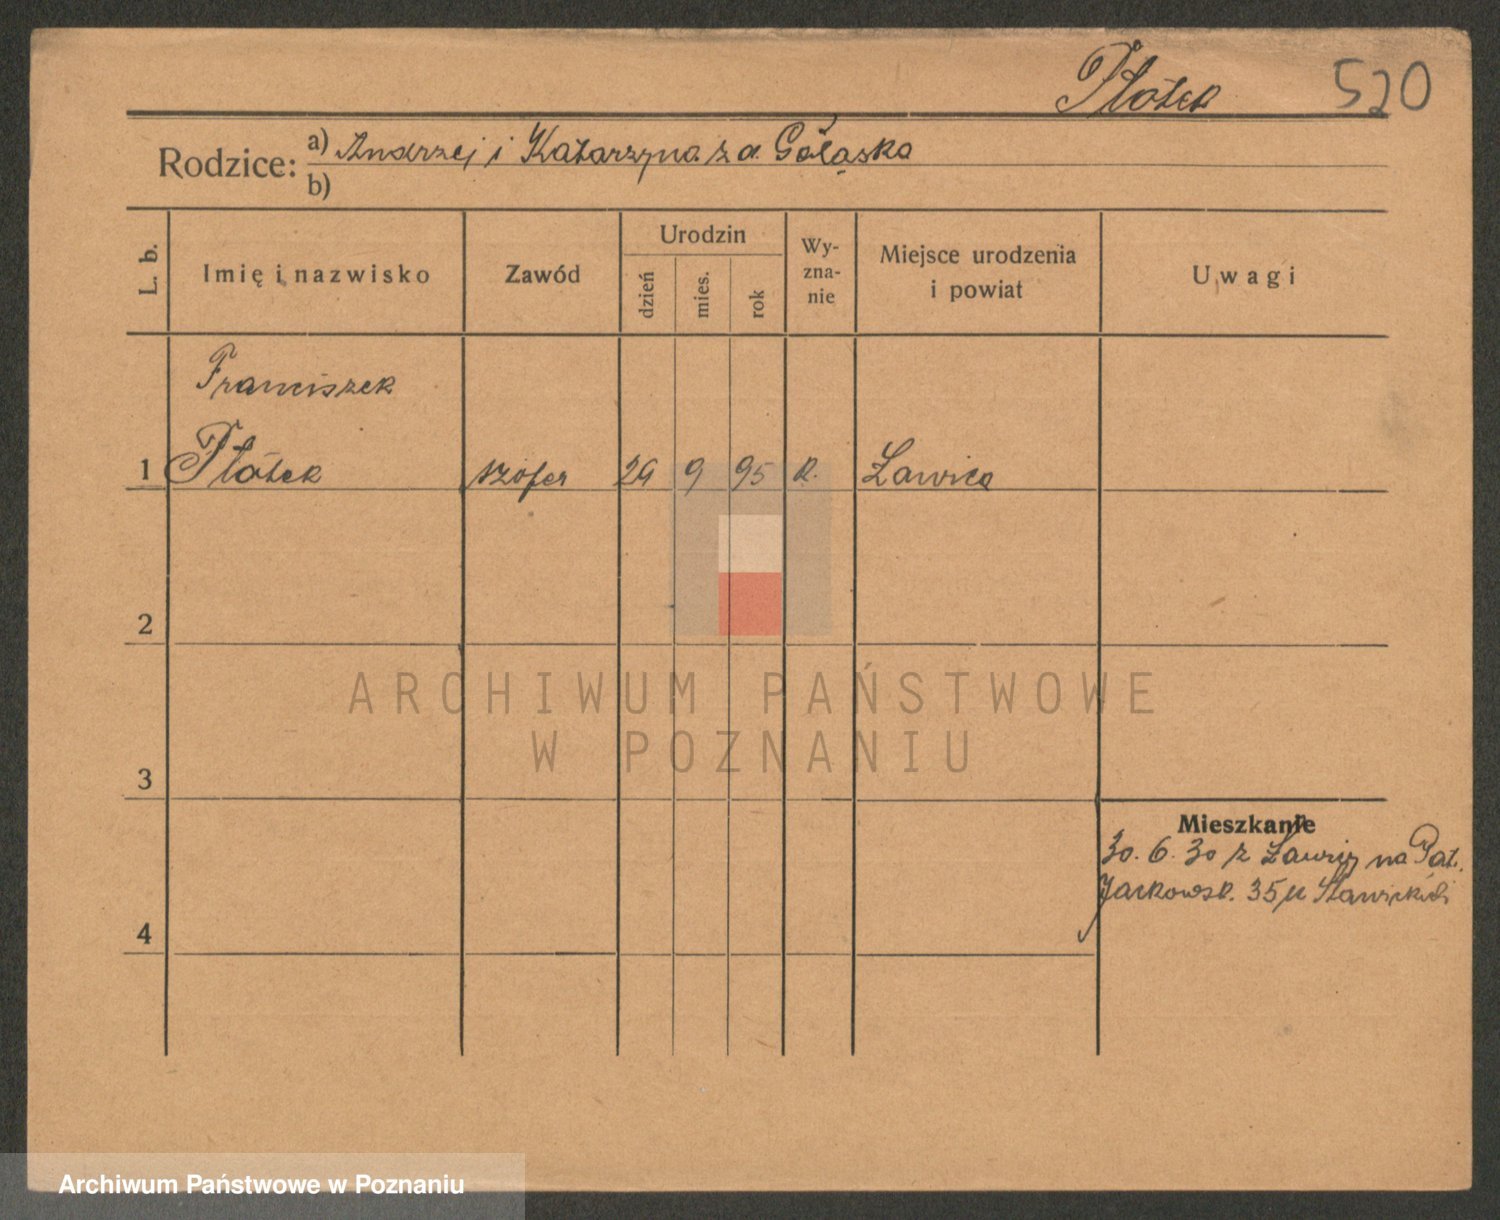 Płótek 520
Rodzice: a) Andrzej i Katarzyna z d. Gołąska
b)
L. b. Imię i nazwisko Zawód Urodzin dzień mies. rok Wy-zna-nie Miejsce urodzenia i powiat Uwagi
Franciszek
1 Płótek szofer 29 9 95 k. Ławica
2
3
Mieszkanie
30. 6. 30 z Ławicy na Pat.
Jackowsk. 35 u
4
ARCHIWUM PAŃSTWOWE
W POZNANIU
Archiwum Państwowe w Poznaniu